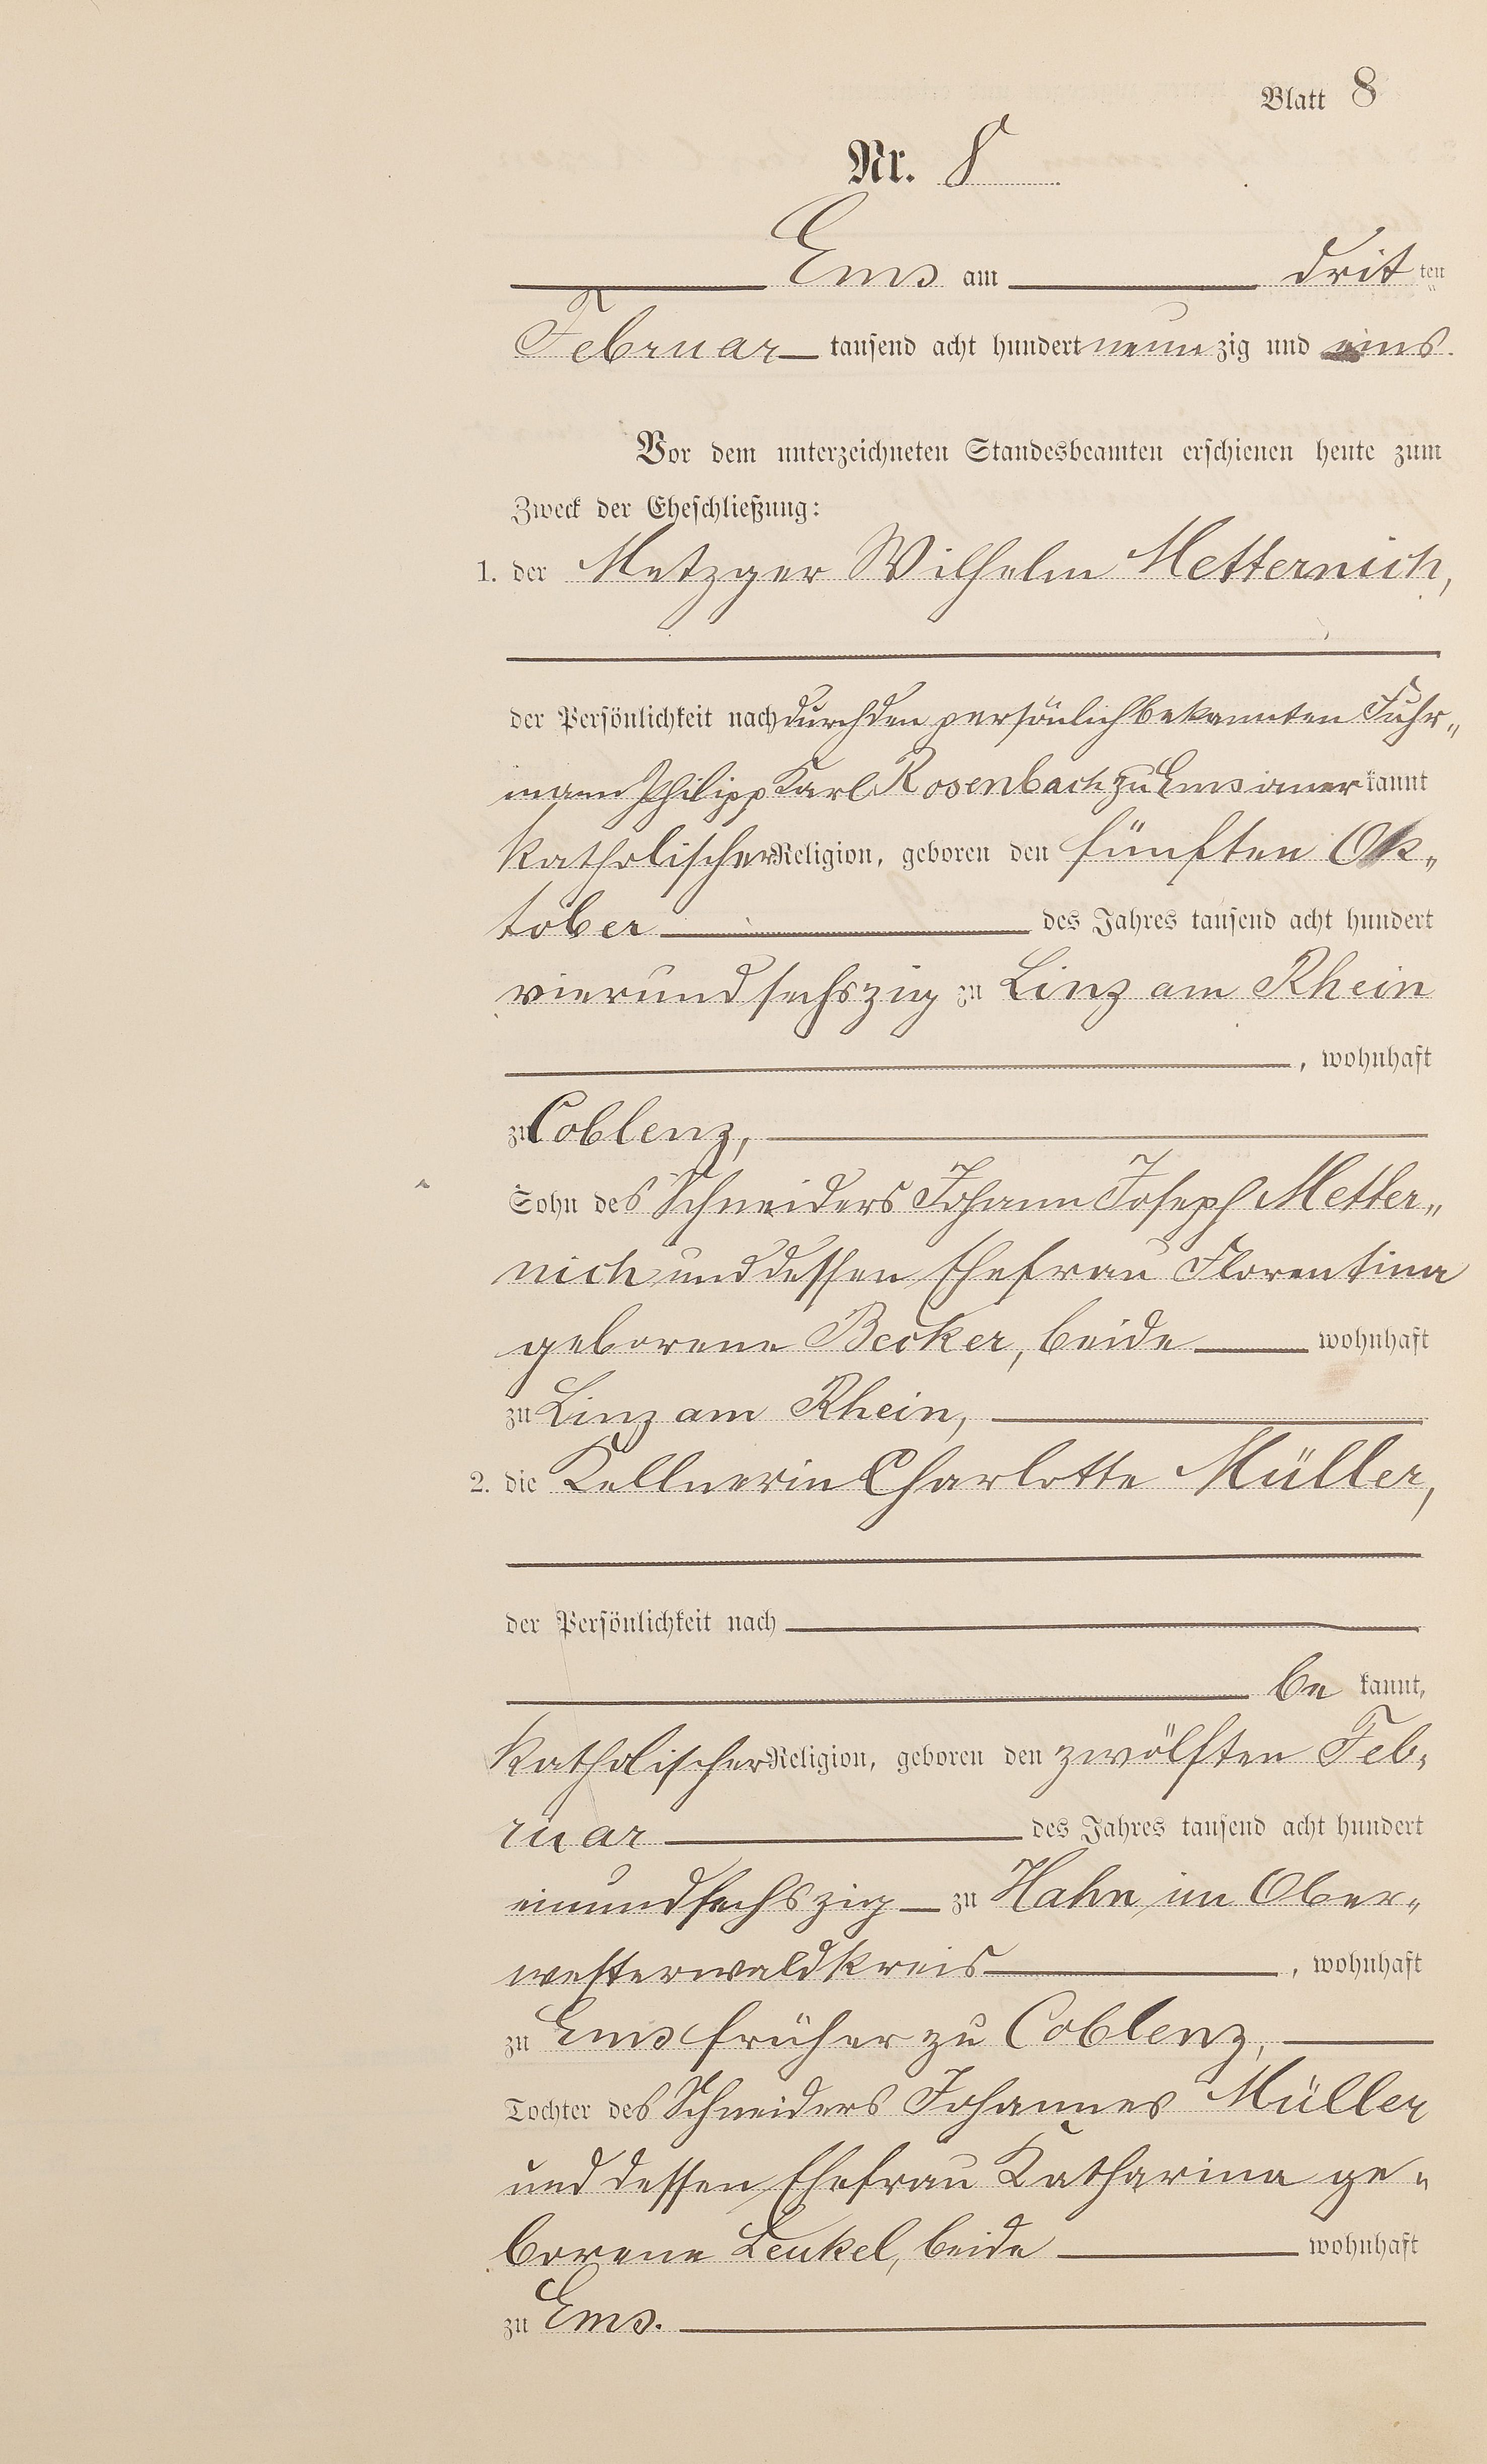 Blatt 8
Nr. 8
Ems am dritten
Februar tausend acht hundert neunzig und eins.
Vor dem unterzeichneten Standesbeamten erschienen heute zum
Zweck der Eheschließung:
1. der Metzger Wilhelm Metternich,
der Persönlichkeit nach durch den persönlich bekannten Fuhr„
mann Philipp Karl Rosenbach zu Ems anerkannt
katholischer Religion, geboren den fünften Ok„
tober des Jahres tausend acht hundert
vierundsechszig zu Linz am Rhein
, wohnhaft
zu Coblenz,
Sohn des Schneiders Johann Joseph Metter„
nich und dessen Ehefrau Florentina
geborene Becker, beide wohnhaft
zu Linz am Rhein,
2. die Kellnerin Charlotte Müller,
der Persönlichkeit nach
be kannt,
katholischer Religion, geboren den zwölften Feb„
ruar des Jahres tausend acht hundert
einundsechszig zu Hahn im Ober„
westerwaldkreis , wohnhaft
zu Ems früher zu Coblenz,
Tochter des Schneiders Johannes Müller
und dessen Ehefrau Katharina ge„
borene Leukel, beide wohnhaft
zu Ems.